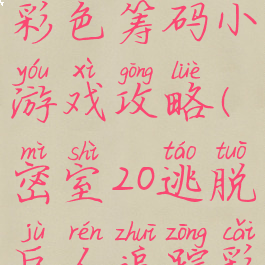 彩色筹码小
yóu xì gōng lüè
游戏攻略(
mì shì táo tuō
密室20逃脱
jù rén zhuī zōng cǎi
巨人追踪彩